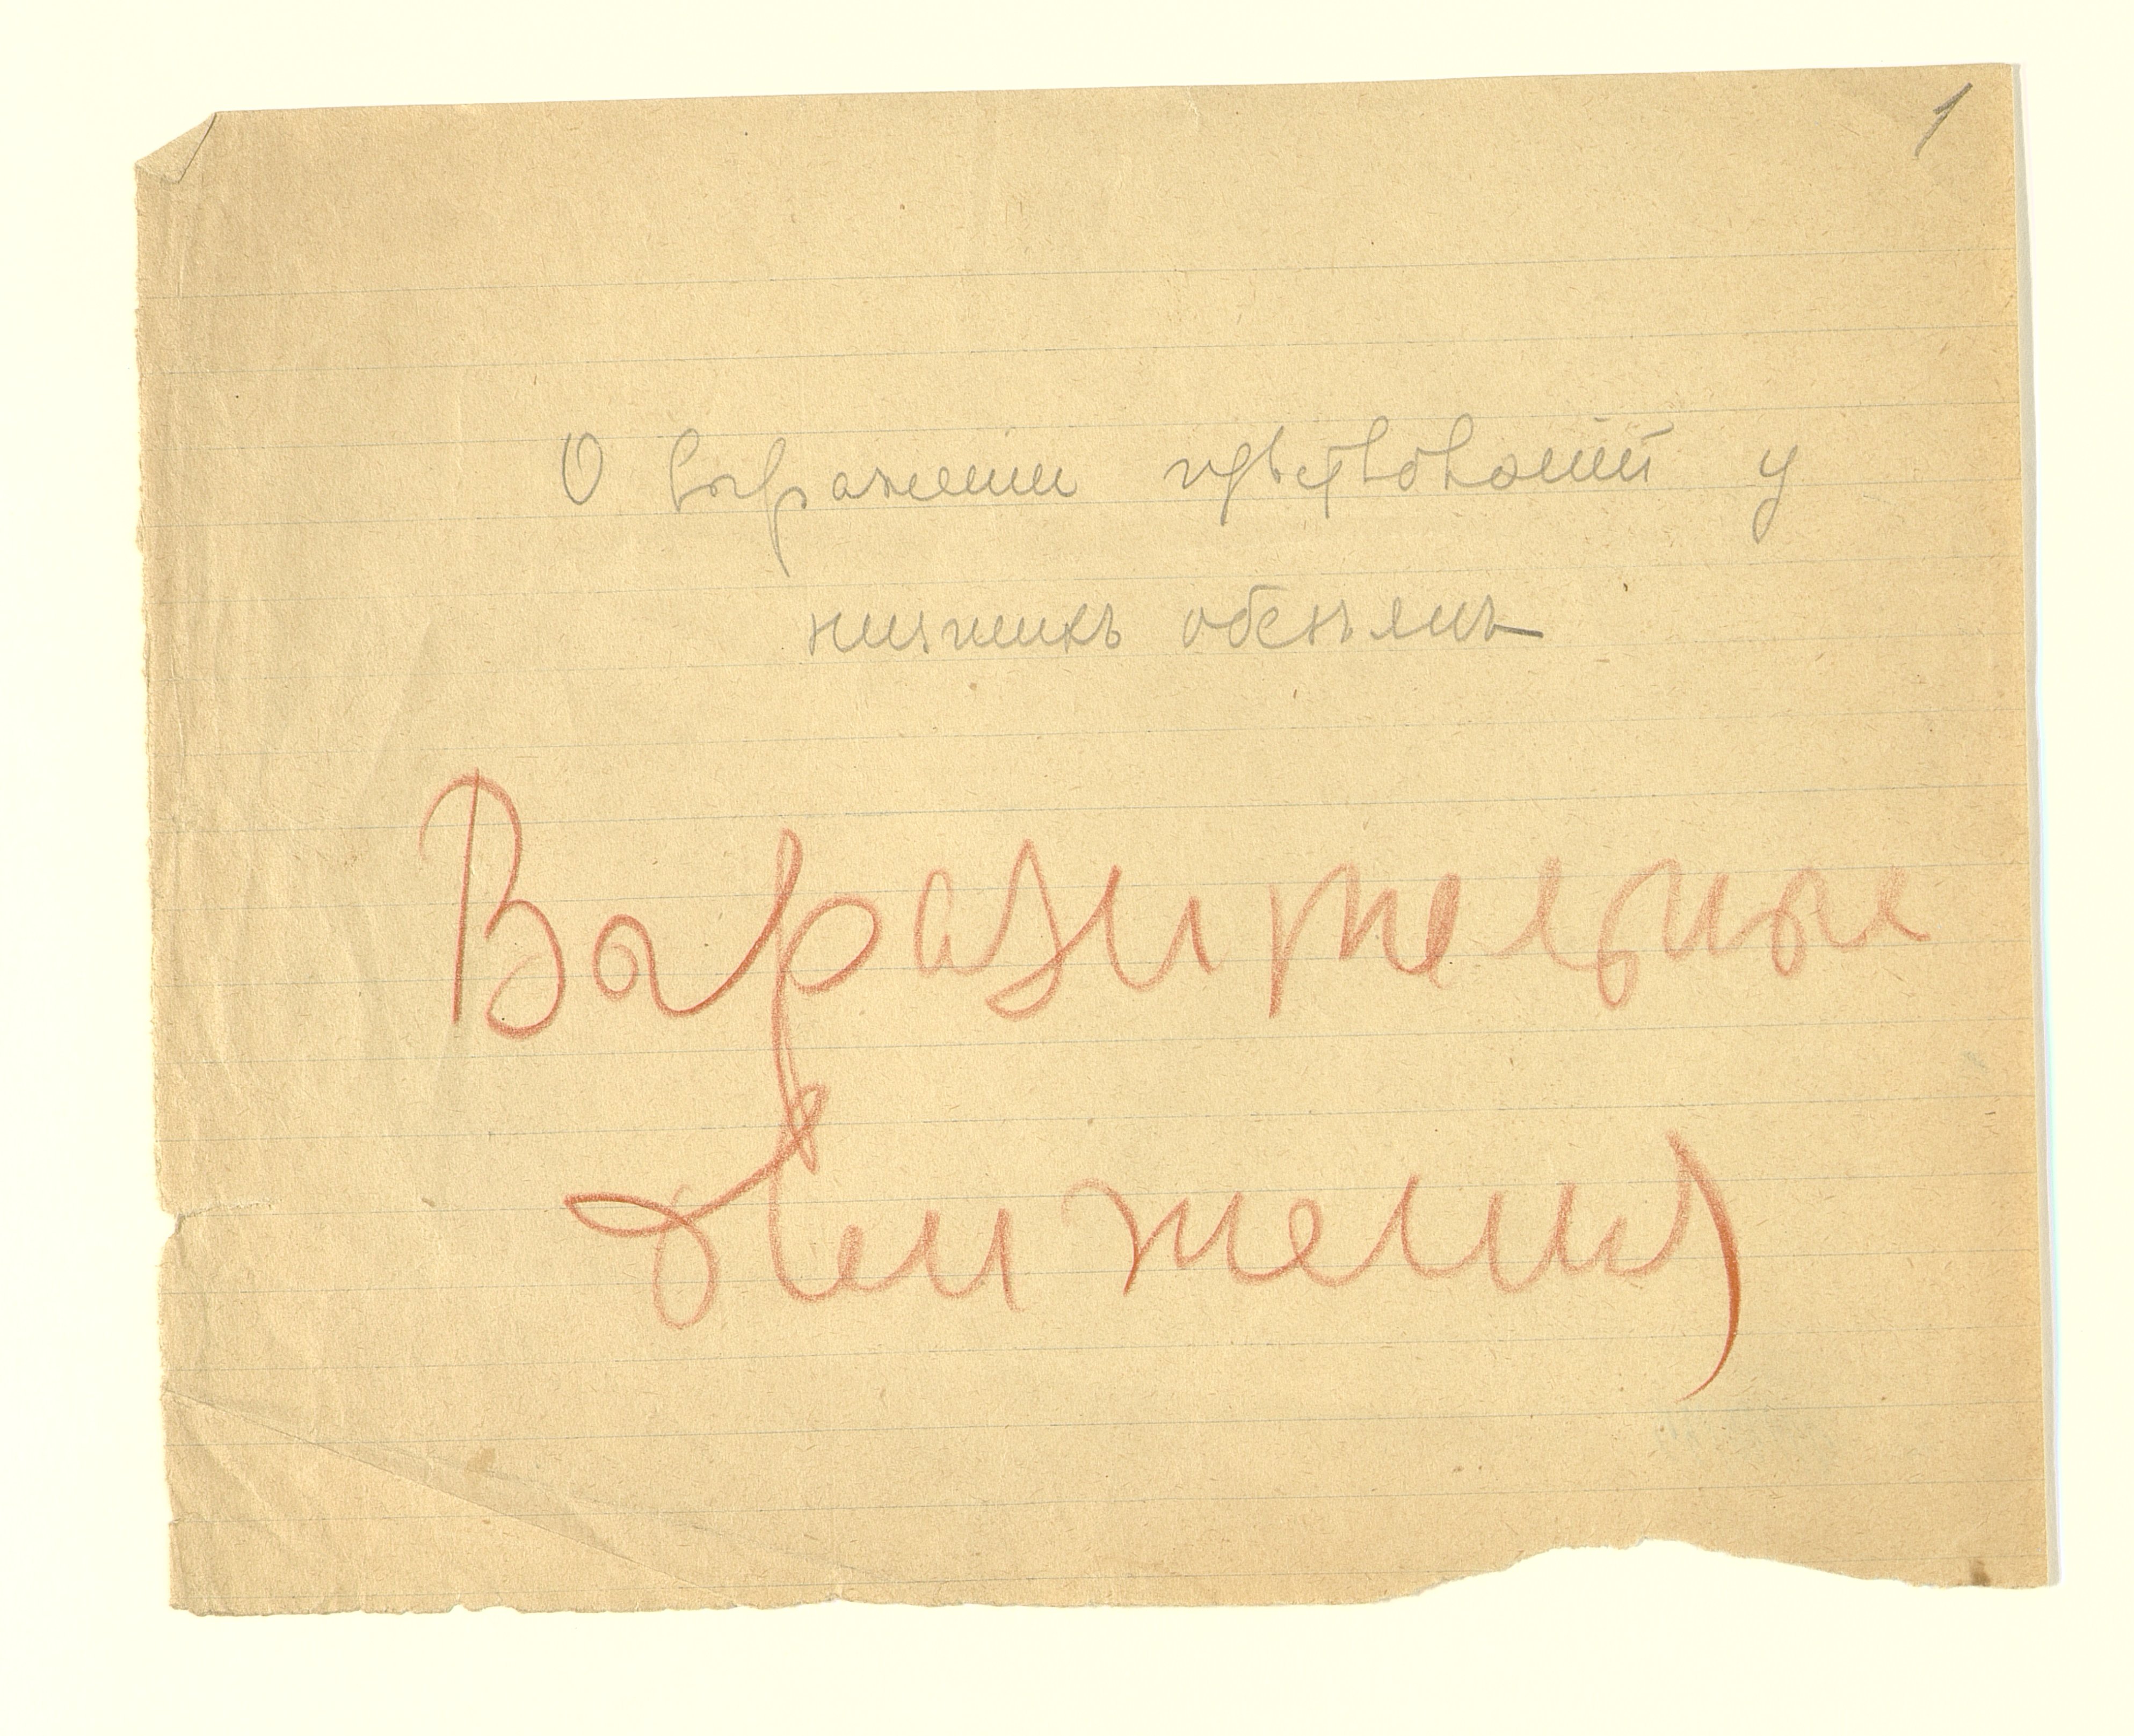 1
О выраженiи чувствованiй у
низшихъ обезьянъ
Выразительные
движения